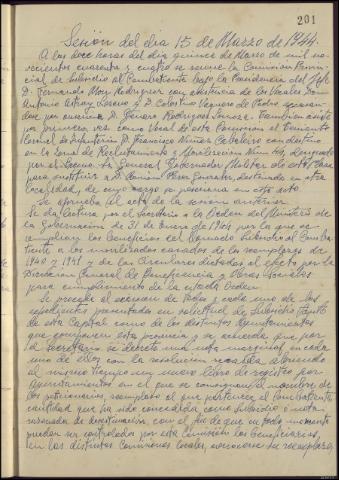 201
Sesión del dia 15 de Marzo de 1944.
A las doce horas del dia quince de Marzo de mil no-
vecientos cuarenta y cuatro se reune la Comision Provin-
cial de Subsidio al Combatiente bajo la Presidencia del
D. Fernando Rodriguez con asistencia de los Vocales Don
Antonio Lorenzo y D. Celestino Vaquero de Pedro
por D. Genaro Rodriguez. Tambien asiste
por primera vez como Vocal de esta Comision el Teniente
Coronel de Infanteria D. Francisco Caballero con destino
en la Zona de Reclutamiento y Movilizacion designado
por el General Gobernador Militar de esta Plaza
para sustituir a D. Perez destinado en otra
localidad, de cuyo cargo se posesiona en este acto.
Se aprueba el acta de la sesion anterior.
Se da lectura por el Secretario a la Orden del Ministerio de
la Gobernacion de 31 de Enero de 1944 por la que se
los beneficios del llamado Subsidio al Comba-
tiente a los casados de los reemplazos de
1940 y 1941 y de las Circulares dictadas al efecto por la
Direccion General de Beneficencia y Obras Sociales
para cumplimiento de la citada Orden.
Se procede al examen de todos y cada uno de los
expedientes presentados en solicitud de Subsidio tanto
de esta Capital como de los distintos Ayuntamientos
que componen esta provincia y se acuerda que por
el Secretario se una nota en cada
uno de ellos con la resolucion recaida abriendo
al mismo tiempo un nuevo libro de registro por
Ayuntamientos en el que se consignará el nombre de
los solicitantes, reemplazo al que pertenece el Combatiente
cantidad que ha sido concedida como Subsidio o nota
de desestimacion, con el fin de que en todo momento
puedan ser controlados por esta Comision los beneficiarios,
en las distintas Comisiones locales,